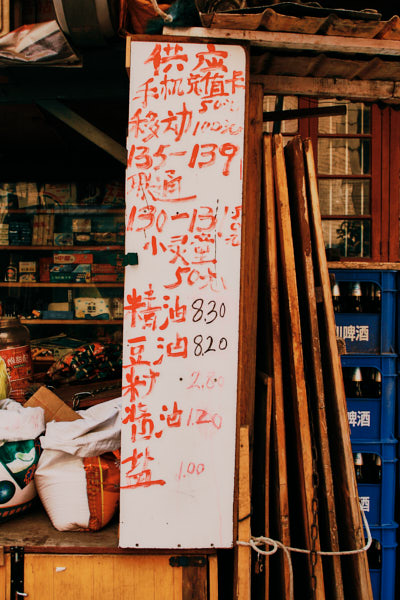 供应
手机充值卡
50元
移动100元
135-139
联通
130-131 50元
小灵通
50元
精油8.30
豆油8.20
籽 2.80
酱油1.20
盐 1.00
啤酒
啤酒
啤酒